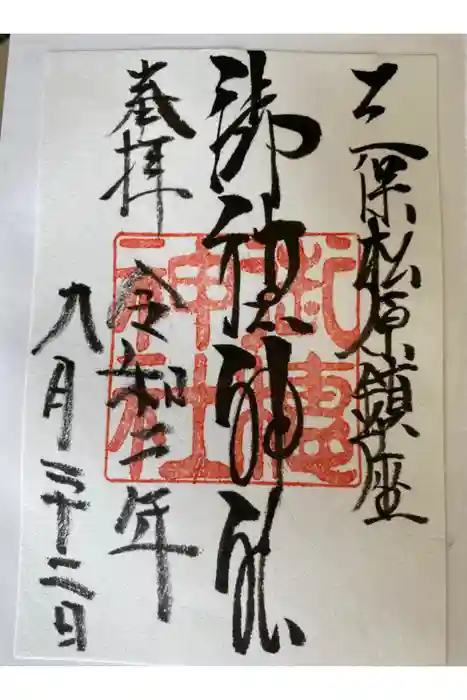 三保松原鎮座
御穂神社
奉拝
令和二年
九月二十二日
御穗
神社